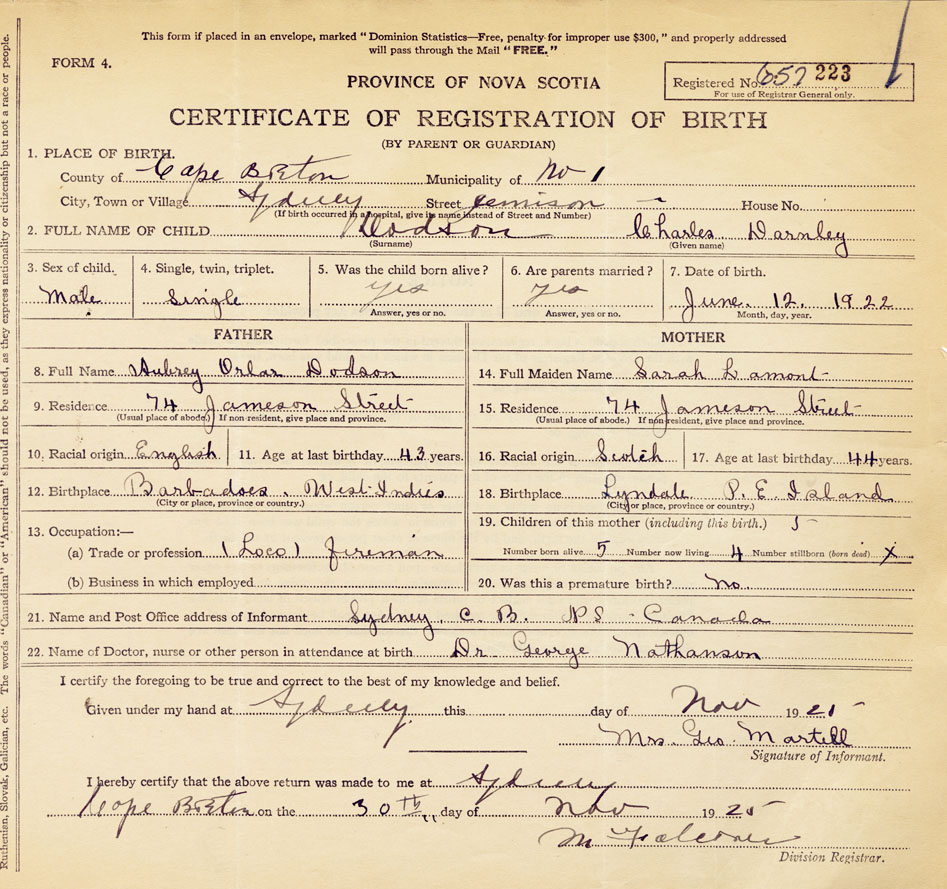 This form if placed in an envelope, marked "Dominion Statistics—Free, penalty for improper use $300," and properly addressed
will pass through the Mail "FREE."
FORM 4.
PROVINCE OF NOVA SCOTIA
Registered No. 657 223
For use of Registrar General only.
CERTIFICATE OF REGISTRATION OF BIRTH
(BY PARENT OR GUARDIAN)
1. PLACE OF BIRTH.
County of Cape Breton Municipality of No 1
City, Town or Village Sydney Street House No.
(If birth occurred in a hospital, give its name instead of Street and Number)
2. FULL NAME OF CHILD Dodson Charles Darnley
(Surname) (Given name)
3. Sex of child. 4. Single, twin, triplet. 5. Was the child born alive? 6. Are parents married? 7. Date of birth.
Male Single yes yes June. 12, 1922
Answer, yes or no. Answer, yes or no. Month, day, year.
FATHER MOTHER
8. Full Name Aubrey Orlar Dodson
9. Residence 74 Jameson Street
(Usual place of abode.) If non-resident, give place and province.
10. Racial origin English 11. Age at last birthday 43 years.
12. Birthplace Barbadoes. West Indies
(City or place, province or country.)
13. Occupation:—
(a) Trade or profession (Loco) Fireman
(b) Business in which employed
14. Full Maiden Name Sarah Lamont
15. Residence 74 Jameson Street
(Usual place of abode.) If non-resident, give place and province.
16. Racial origin Scotch 17. Age at last birthday 44 years.
18. Birthplace Lyndale P. E Island
(City or place, province or country.)
19. Children of this mother (including this birth.) 5
Number born alive 5 Number now living 4 Number stillborn (born dead) X
20. Was this a premature birth? No.
21. Name and Post Office address of Informant Sydney, C. B. NS - Canada
22. Name of Doctor, nurse or other person in attendance at birth Dr. George Nathanson
I certify the foregoing to be true and correct to the best of my knowledge and belief.
Given under my hand at Sydney this day of Nov 1925
Mrs. Geo. Martell
Signature of Informant.
I hereby certify that the above return was made to me at Sydney
Cape Breton on the 30th day of Nov 1925
Division Registrar.
Ruthenian, Slovak, Galician, etc. The words "Canadian" or "American" should not be used, as they express nationality or citizenship but not a race or people.